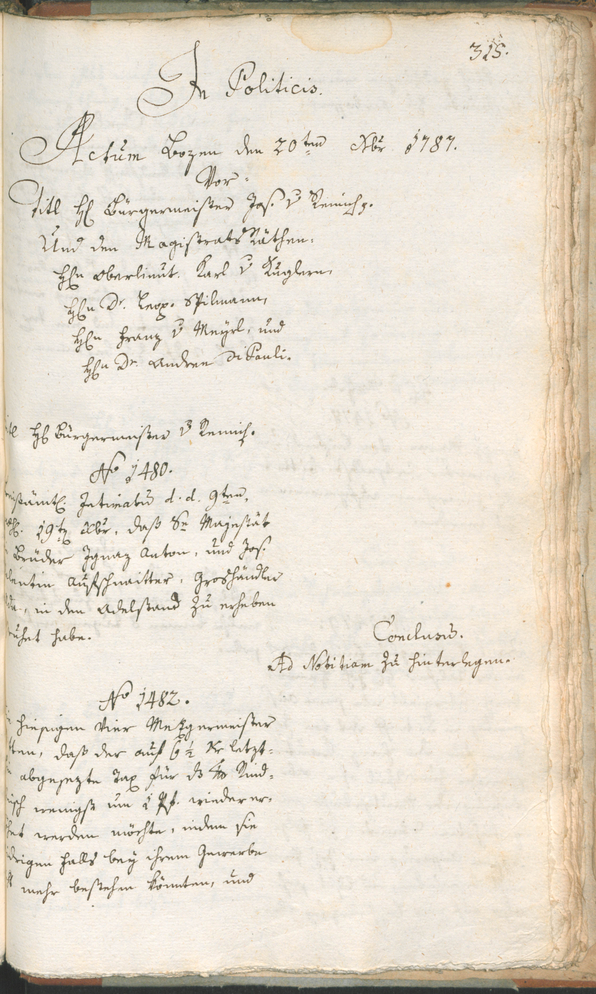 315.
In Politicis.
Actum Bozen den 20ten Xbr. 1787.
Vor
Titl H. Bürgermeister Jos. v Remich.
Und den Magistrats Räthen.
Hn Oberlieut. Karl v Kuglern.
Hn Dr. Leop. Spilmann,
Hn Franz v Meyrl, und
Hn Dr. Andree DiPauli.
H Bürgermeister v Remich.
No 1480.
Intimatum d. d. 9ten,
19ten Xbr, daß Se Majestät
Brüder Ignaz Anton, und Jos.
Aufschnaitter, Groshändler
in den Adelstand zu erheben
ruhet habe.
Conclusum.
Ad Notitiam zu hinterlegen.
No 1482.
hiesigen Vier Metzgermeister
ten, daß der auf 6 1/2 Kr letzt-
abgesezte Tax für das Rind-
wenigst um 1 Pf. wieder er-
het werden möchte, indem sie
drigen falls bey ihrem Gewerbe
mehr bestehen könnten, und